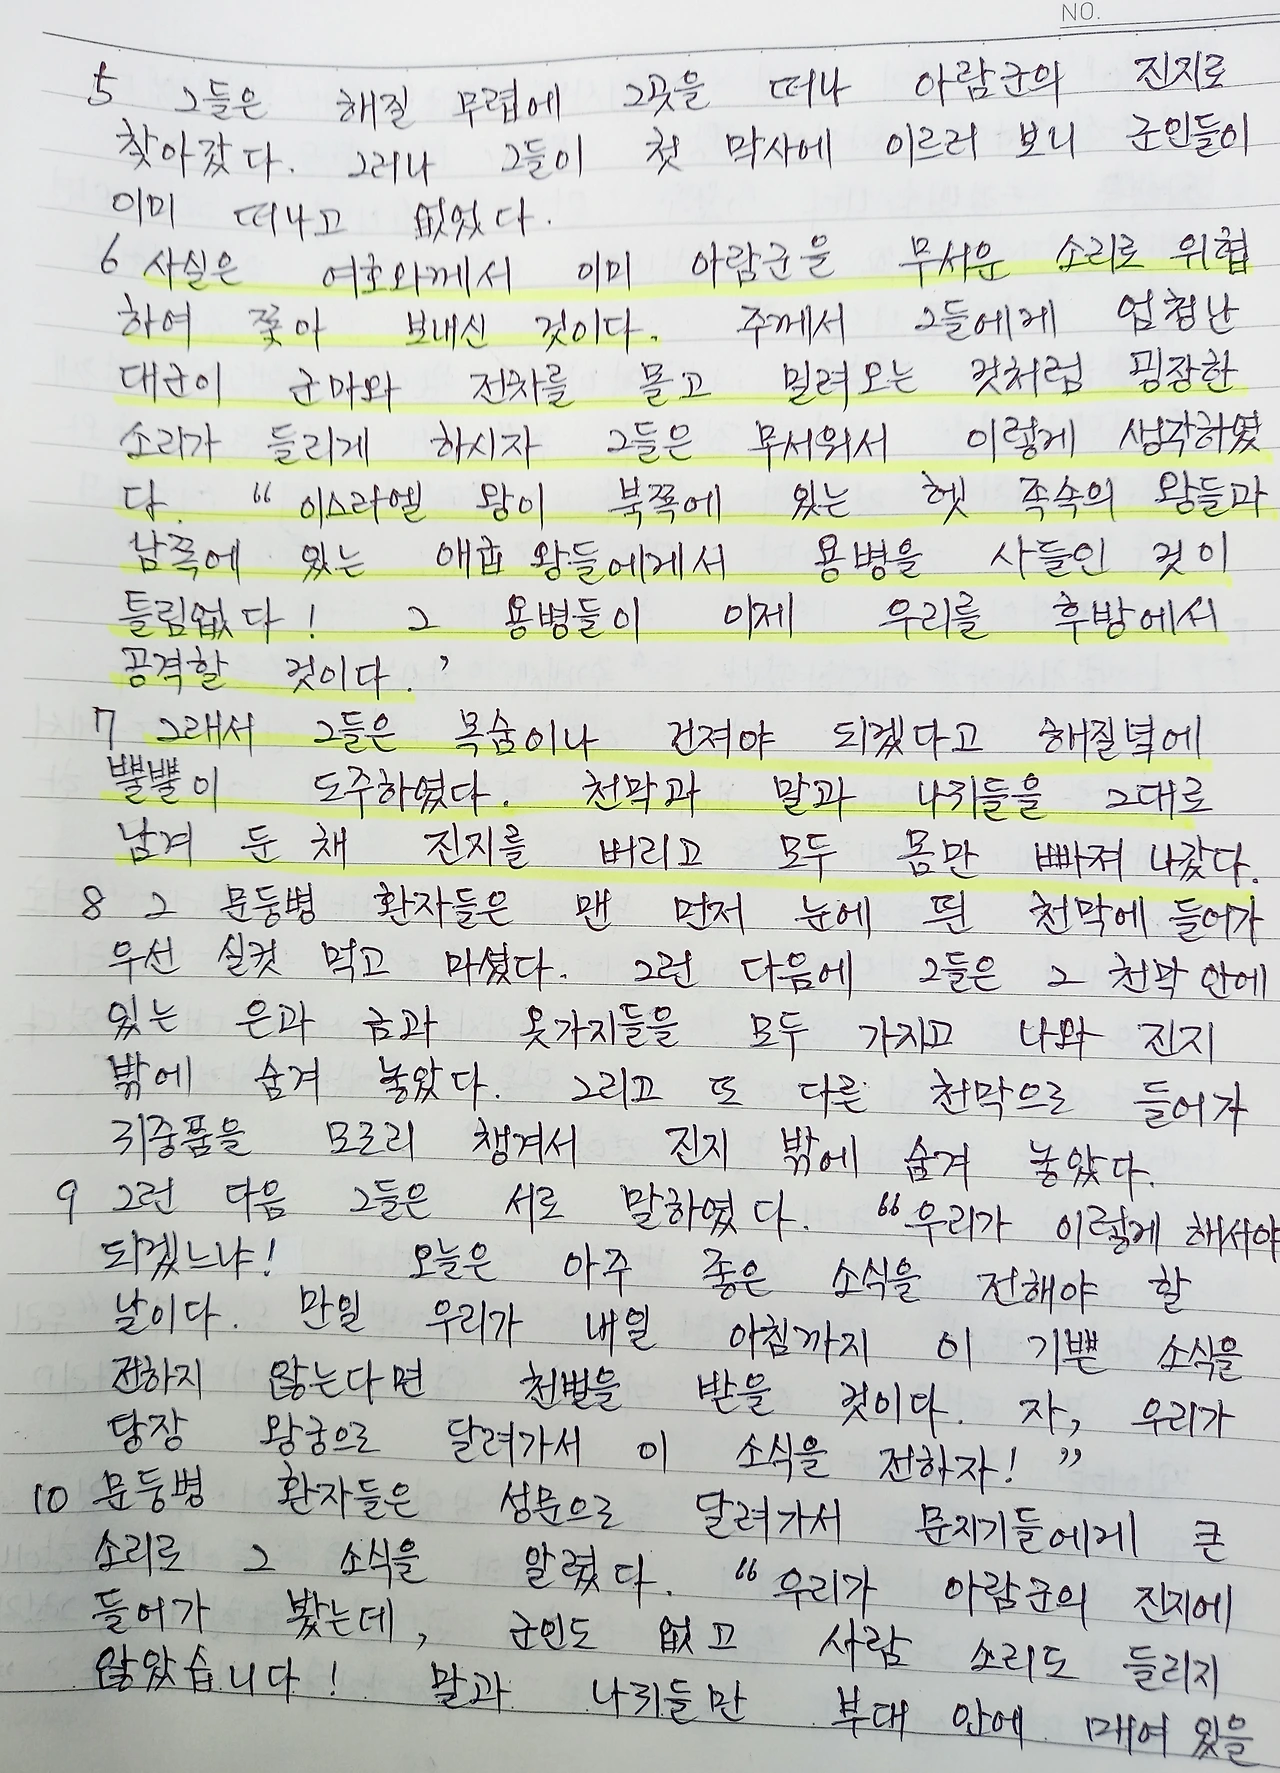 NO.
5 그들은 해질 무렵에 그곳을 떠나 아람군의 진지로
찾아갔다. 그러나 그들이 첫 막사에 이르러 보니 군인들이
이미 떠나고 없었다.
6 사실은 여호와께서 이미 아람군을 무서운 소리로 위협
하여 쫓아 보내신 것이다. 주께서 그들에게 엄청난
대군이 군마와 전차를 몰고 밀려오는 것처럼 굉장한
소리가 들리게 하시자 그들은 무서워서 이렇게 생각하였
다. “이스라엘 왕이 북쪽에 있는 헷 족속의 왕들과
남쪽에 있는 애굽 왕들에게서 용병을 사들인 것이
틀림없다! 그 용병들이 이제 우리를 후방에서
공격할 것이다.’
7 그래서 그들은 목숨이나 건져야 되겠다고 해질녘에
뿔뿔이 도주하였다. 천막과 말과 나귀들을 그대로
남겨 둔 채 진지를 버리고 모두 몸만 빠져 나갔다.
8 그 문둥병 환자들은 맨 먼저 눈에 띈 천막에 들어가
우선 실컷 먹고 마셨다. 그런 다음에 그들은 그 천막 안에
있는 은과 금과 옷가지들을 모두 가지고 나와 진지
밖에 숨겨 놓았다. 그리고 또 다른 천막으로 들어가
귀중품을 모조리 챙겨서 진지 밖에 숨겨 놓았다.
9 그런 다음 그들은 서로 말하였다. “우리가 이렇게 해서야
되겠느냐! 오늘은 아주 좋은 소식을 전해야 할
날이다. 만일 우리가 내일 아침까지 이 기쁜 소식을
전하지 않는다면 천벌을 받을 것이다. 자, 우리가
당장 왕궁으로 달려가서 이 소식을 전하자!”
10 문둥병 환자들은 성문으로 달려가서 문지기들에게 큰
소리로 그 소식을 알렸다. “우리가 아람군의 진지에
들어가 봤는데, 군인도 없고 사람 소리도 들리지
않았습니다! 말과 나귀들만 부대 안에 매여 있을